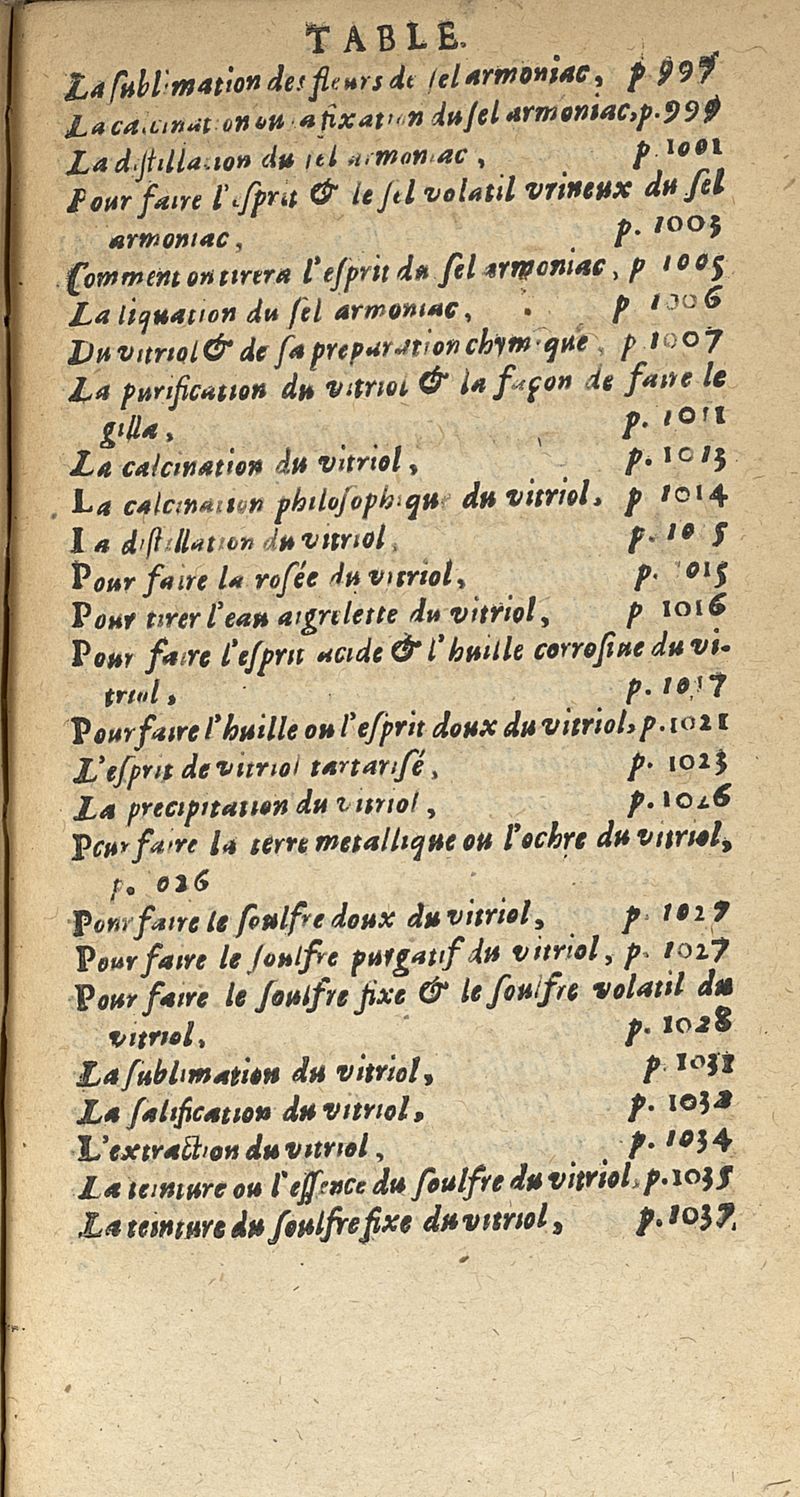 TABLE.
La sublimation des fleurs de sel armoniac, p 997
La calcination ou la fixation du sel armoniac, p. 999
La distillation du sel armoniac, p. 1001
Pour faire l'esprit & le sel volatil vrineux du sel
armoniac, p. 1003
Comment on tirera l'esprit du sel armoniac, p 1005
La liquation du sel armoniac, p 1006
Du vitriol & de sa preparation chymique, p 1007
La purification du vitriol & la façon de faire le
gilla, p. 1011
La calcination du vitriol, p. 1013
La calcination philosophique du vitriol. p 1014
La distillation du vitriol, p. 10 5
Pour faire la rosée du vitriol, p. 015
Pour tirer l'eau aigrelette du vitriol, p 1016
Pour faire l'esprit acide & l'huille corrosiue du vi-
triol, p. 1017
Pour faire l'huille ou l'esprit doux du vitriol, p. 1021
L'esprit de vitriol tartarisé, p. 1023
La precipitation du vitriol, p. 1026
Pour faire la terre metallique ou l'ochre du vitriol,
p. 026
Pour faire le soulfre doux du vitriol, p. 1027
Pour faire le soulfre purgatif du vitriol, p. 1027
Pour faire le soulfre fixe & le soulfre volatil du
vitriol. p. 1028
La sublimation du vitriol, p. 1031
La salification du vitriol, p. 1032
L'extraction du vitriol, p. 1034
La teinture ou l'essence du soulfre du vitriol, p. 1035
La teinture du soulfre fixe du vitriol, p. 1037.